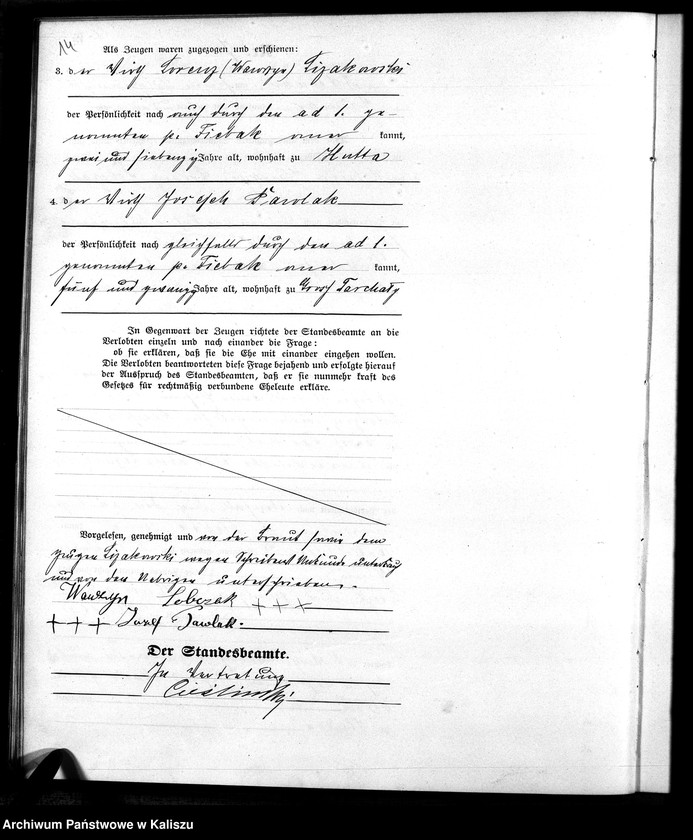 14
Als Zeugen waren zugezogen und erschienen:
3. der Wirth Lorenz (Wawrzyn) Lizakowski
der Persönlichkeit nach auch durch den ad 1. ge-
nannten p. Fiebak aner kannt,
zwei und siebenzig Jahre alt, wohnhaft zu Hutta
4. der Wirth Joseph Pawlak
der Persönlichkeit nach gleichfalls durch den ad 1.
genannten p. Fiebak aner kannt,
fünf und zwanzig Jahre alt, wohnhaft zu Gross Tarchaly
In Gegenwart der Zeugen richtete der Standesbeamte an die
Verlobten einzeln und nach einander die Frage:
ob sie erklären, daß sie die Ehe mit einander eingehen wollen.
Die Verlobten beantworteten diese Frage bejahend und erfolgte hierauf
der Ausspruch des Standesbeamten, daß er sie nunmehr kraft des
Gesetzes für rechtmäßig verbundene Eheleute erkläre.
Vorgelesen, genehmigt und von der Braut sowie dem
Zeugen Lizakowski wegen Schreibens Unkunde unterkreuzt
und von den Uebrigen unterschrieben.
Wawrzyn Lobczak +++
+++ Jozef Pawlak.
Der Standesbeamte.
In Vertretung
Archiwum Państwowe w Kaliszu